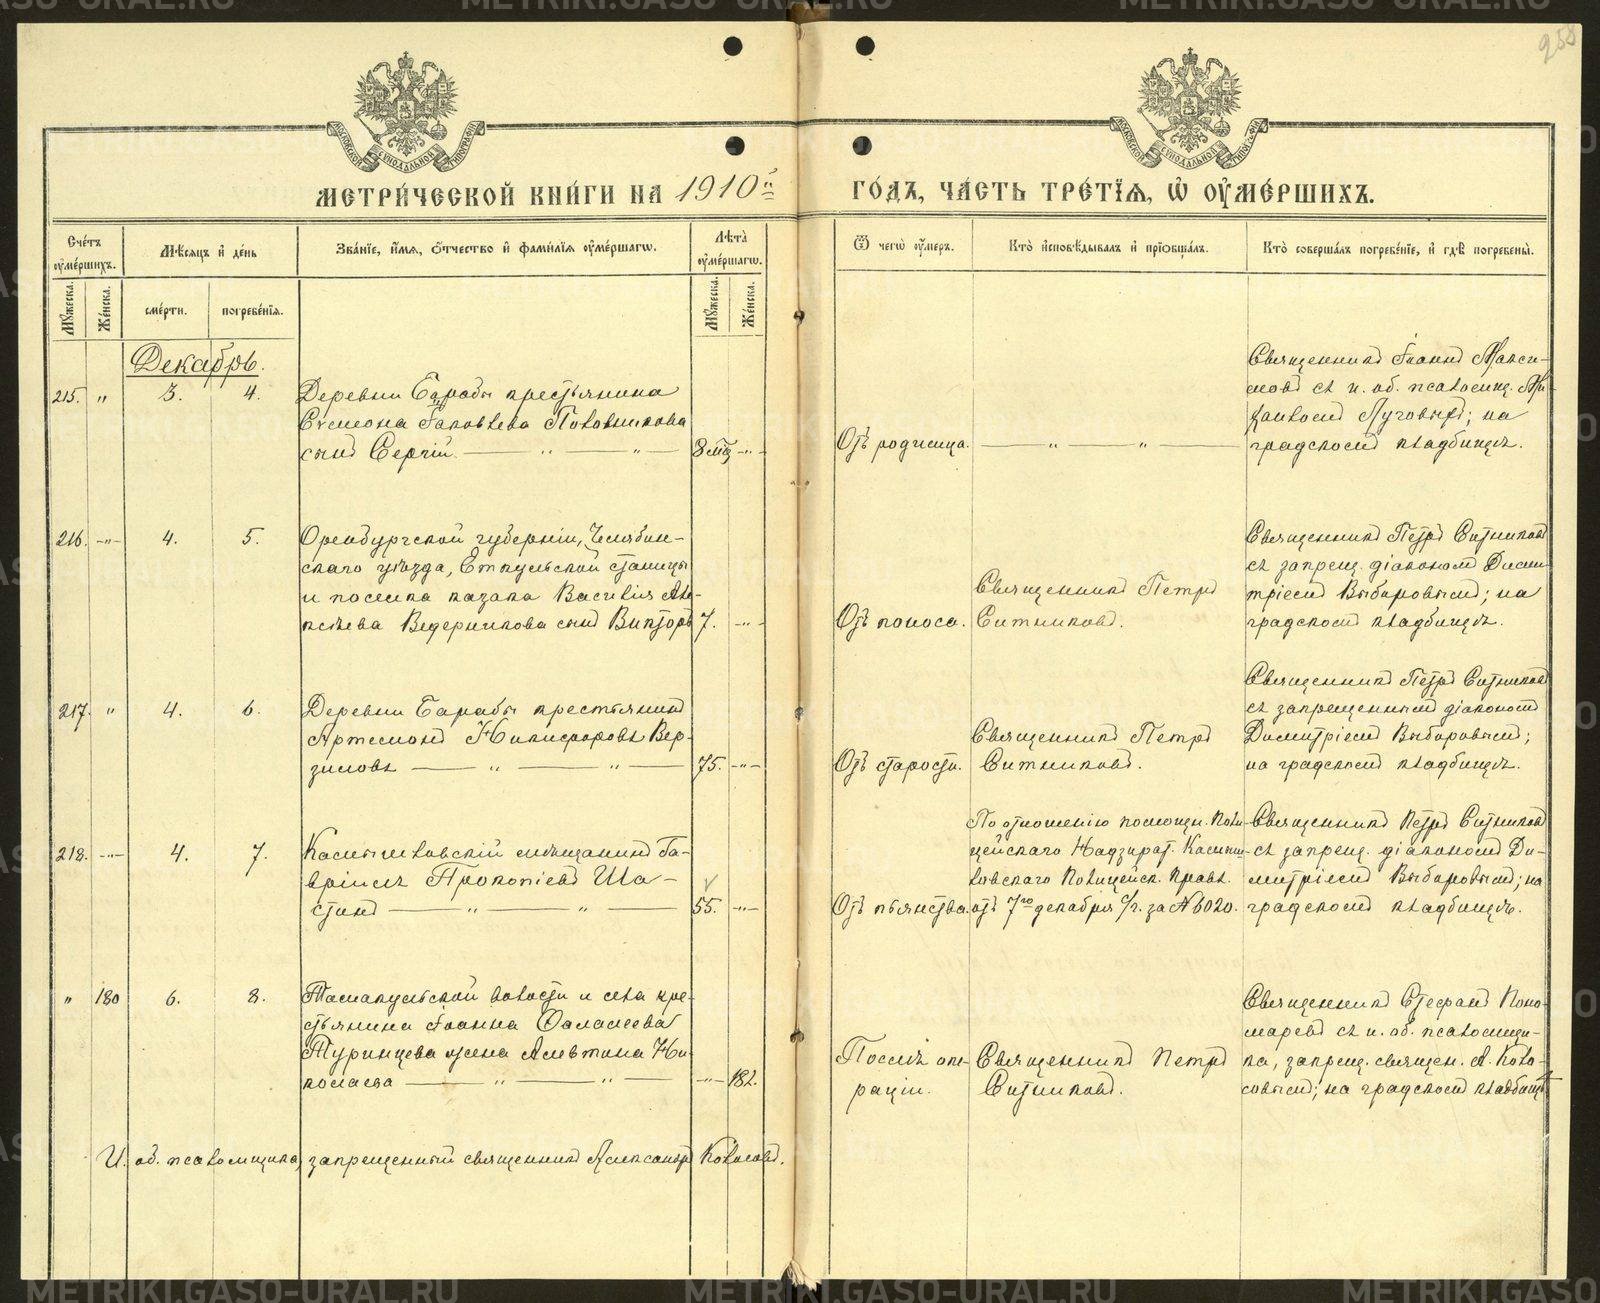 258
МОСКОВСКОЙ СѴНОДАЛЬНОЙ ТИПОГРАФІИ
МОСКОВСКОЙ СѴНОДАЛЬНОЙ ТИПОГРАФІИ
МЕТРИ́ЧЕСКОЙ КНИ́ГИ НА 1910й
ГО́ДЪ, ЧА́СТЬ ТРЕ́ТЇѦ, Ѡ҆ ОУ҆МЕ́РШИХЪ.
Сче́тъ оу҆ме́ршихъ.
Мѣ́сѧцъ и҆ де́нь
Зва́нїе, и҆́мѧ, ѻ҆́тчество и҆ фами́лїѧ оу҆ме́ршагѡ.
Лѣ́та оу҆ме́ршагѡ.
Ѿ чегѡ̀ оу҆́меръ.
Кто̀ и҆сповѣ́дывалъ и҆ прїѡбща́лъ.
Кто̀ соверша́лъ погребе́нїе, и҆ гдѣ̀ погребены̀.
Мꙋ́жеска.
Же́нска.
сме́рти.
погребе́нїѧ.
Мꙋ́жеска.
Же́нска.
Декабрь.
215. " 3. 4.
Деревни Барабы крестьянина
Семена Іаковлева Половникова
сынъ Сергій. — " — " —
8 мц. -"-
Отъ родимца.
— " — " —
Священникъ Іоаннъ Макси-
мовъ съ и. об. псаломщ. Ми-
хаиломъ Луговыхъ; на
градскомъ кладбищѣ.
216. -"- 4. 5.
Оренбургской губерніи, Челябин-
скаго уѣзда, Еткульской станицы
и поселка казака Василія Але-
ксѣева Ведерникова сынъ Викторъ
7. -"-
Отъ поноса.
Священникъ Петръ
Ситниковъ.
Священникъ Петръ Ситниковъ
съ запрещ. діакономъ Дими-
тріемъ Выборовымъ; на
градскомъ кладбищѣ.
217. " 4. 6.
Деревни Барабы крестьянинъ
Артемонъ Никифоровъ Вер-
зиловъ — " — " —
75. -"-
Отъ старости.
Священникъ Петръ
Ситниковъ.
Священникъ Петръ Ситниковъ
съ запрещеннымъ діакономъ
Димитріемъ Выборовымъ;
на градскомъ кладбищѣ.
218. -"- 4. 7.
Камышловскій мѣщанинъ Га-
вріилъ Прокопіевъ Ша-
стинъ — " — " —
55. -"-
Отъ пьянства.
По отношенію помощн. Поли-
цейскаго Надзират. Камыш-
ловскаго Полицейск. Правл.
отъ 7го декабря с/г. за № 6020.
Священникъ Петръ Ситниковъ
съ запрещ. діакономъ Ди-
митріемъ Выборовымъ; на
градскомъ кладбищѣ.
" 180 6. 8.
Тамакульской волости и села кре-
стьянина Іоанна Фаламеева
Туринцева жена Алевтина Ни-
колаева — " — " —
-"- 18 1/2.
Послѣ опе-
раціи.
Священникъ Петръ
Ситниковъ.
Священникъ Стефанъ Поно-
маревъ съ и. об. псаломщи-
ка, запрещ. священ. А. Коло-
совымъ; на градскомъ кладбищѣ
И. об. псаломщика, запрещенный священникъ Александръ Колосовъ.
METRIKI.GASO-URAL.RU